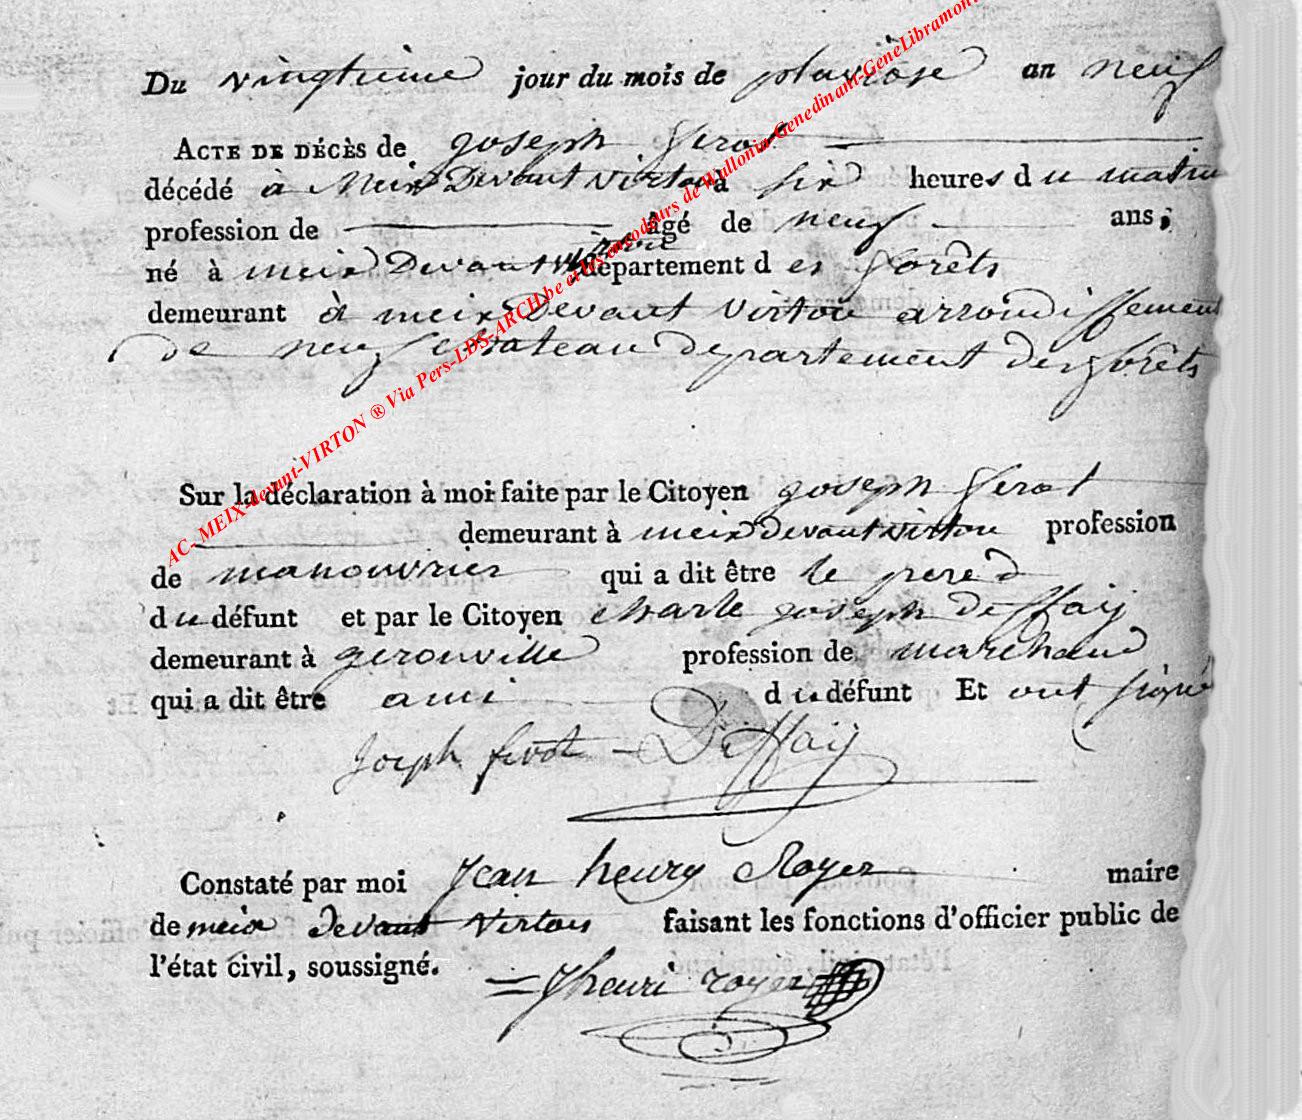 Du vingtieme jour du mois de pluviose an neuf
ACTE DE DÉCÈS de joseph Gerot
décédé à Meix Devant Virton à six heures du matin
profession de âgé de neuf ans,
né à meix Devant virton département des forêts
demeurant à meix Devant Virton arrondissement
de neufchateau departement des forêts
Sur la déclaration à moi faite par le Citoyen joseph Gerot
demeurant à meix devant virton profession
de manouvrier qui a dit être le pere
du défunt et par le Citoyen charle joseph Deffaij
demeurant à gerouville profession de marchand
qui a dit être ami du défunt Et ont signé
Joseph Deffaij
Constaté par moi Jean henry Royer maire
de meix devant Virton faisant les fonctions d'officier public de
l'état civil, soussigné.
Jhenri royer
AC- MEIX-devant-VIRTON ® Via Pers-LDS-ARCH.be et les encodeurs de Wallonia-Genedinant-GeneLibramont